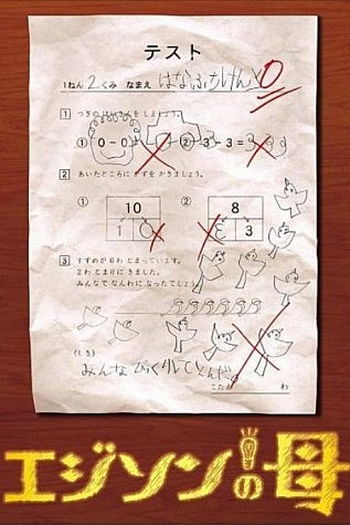 テスト
1ねん 2くみ なまえ はなぶさけんと 0
1 つぎの けいさんを しましょう。
① 0-0 ② 3-3=
2 あいたところに かずを かきましょう。
① ②
10 8
1 0 3
3 すずめが 6わ とまっています。
2わ とまりに きました。
みんなで なんわに なったでしょう
(しき)
みんな びっくりしてとんだ。
こたえ わ
エジソンの母